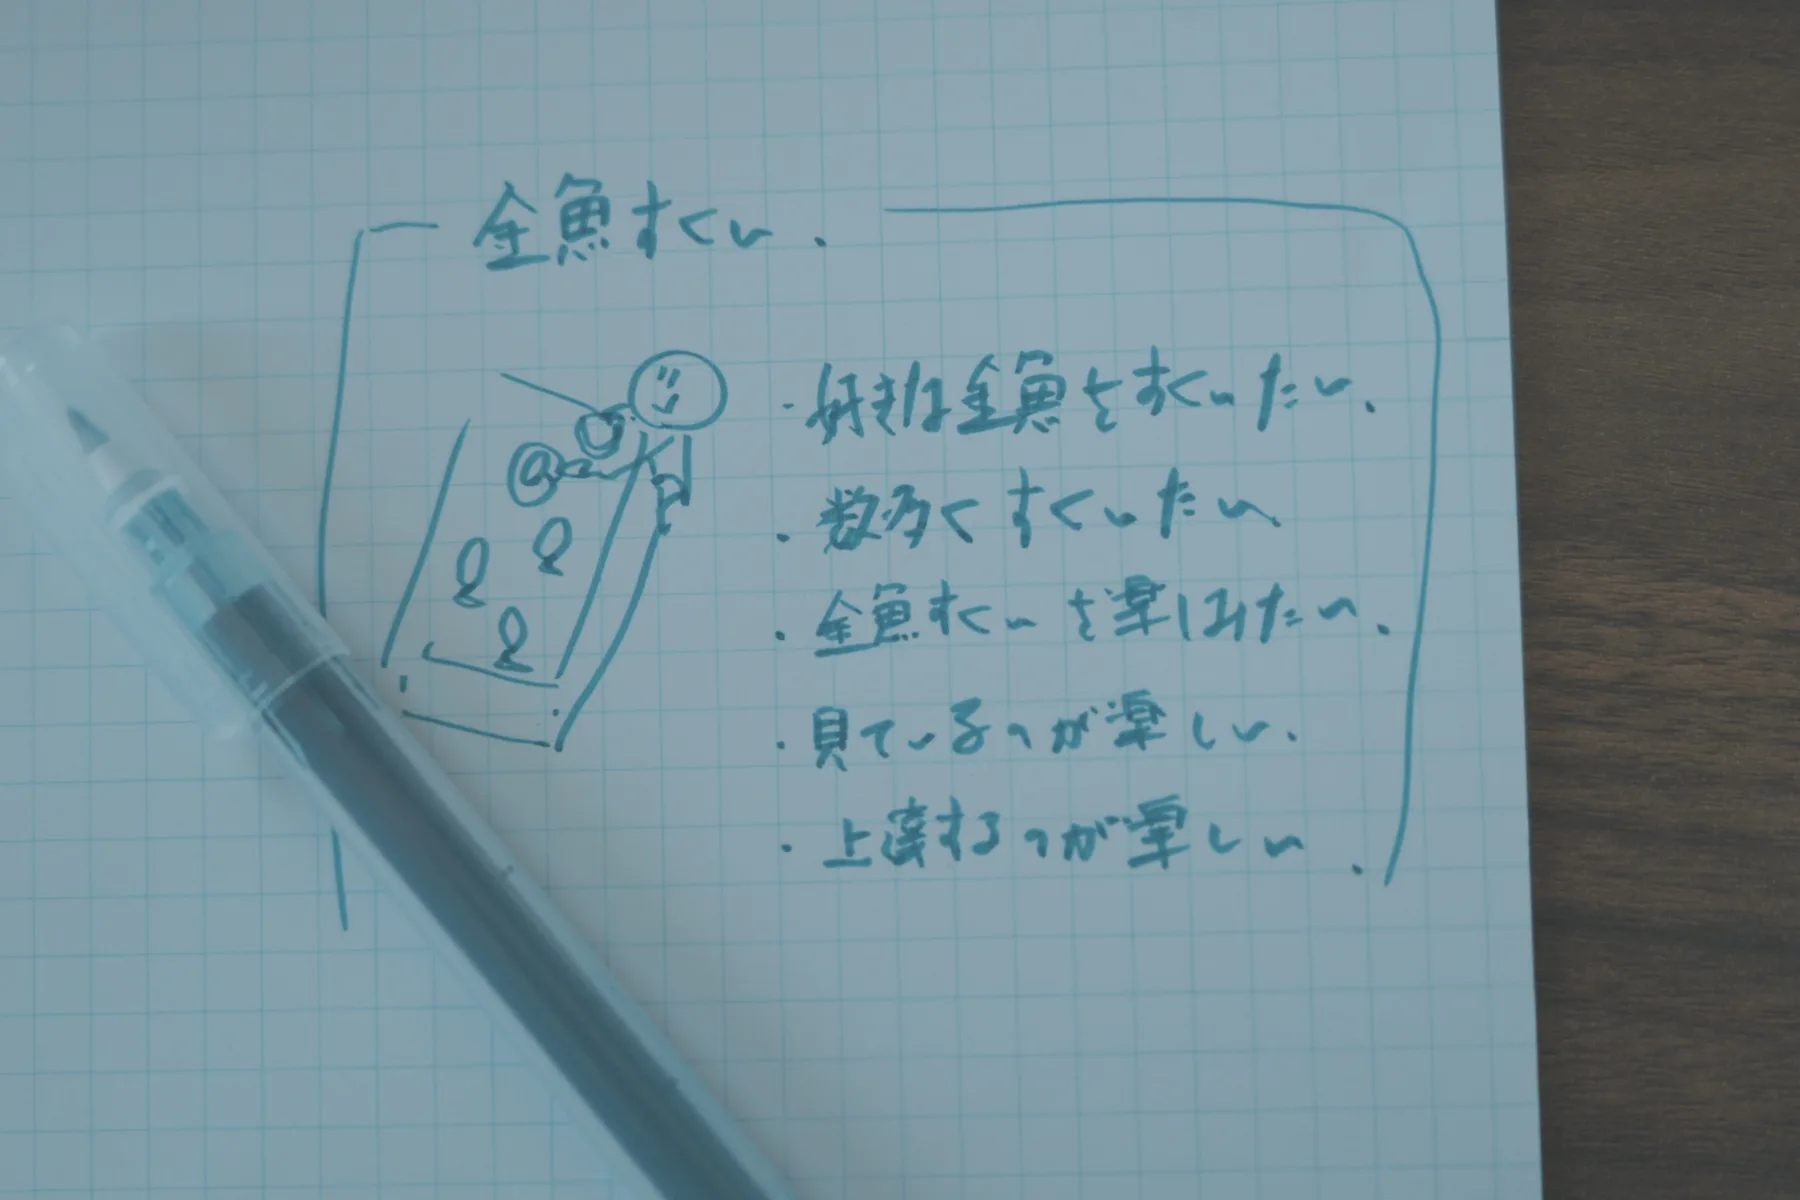 金魚すくい.
・好きな金魚をすくいたい.
・数多くすくいたい
・金魚すくいを楽しみたい.
・見ているのが楽しい.
・上達するのが楽しい.